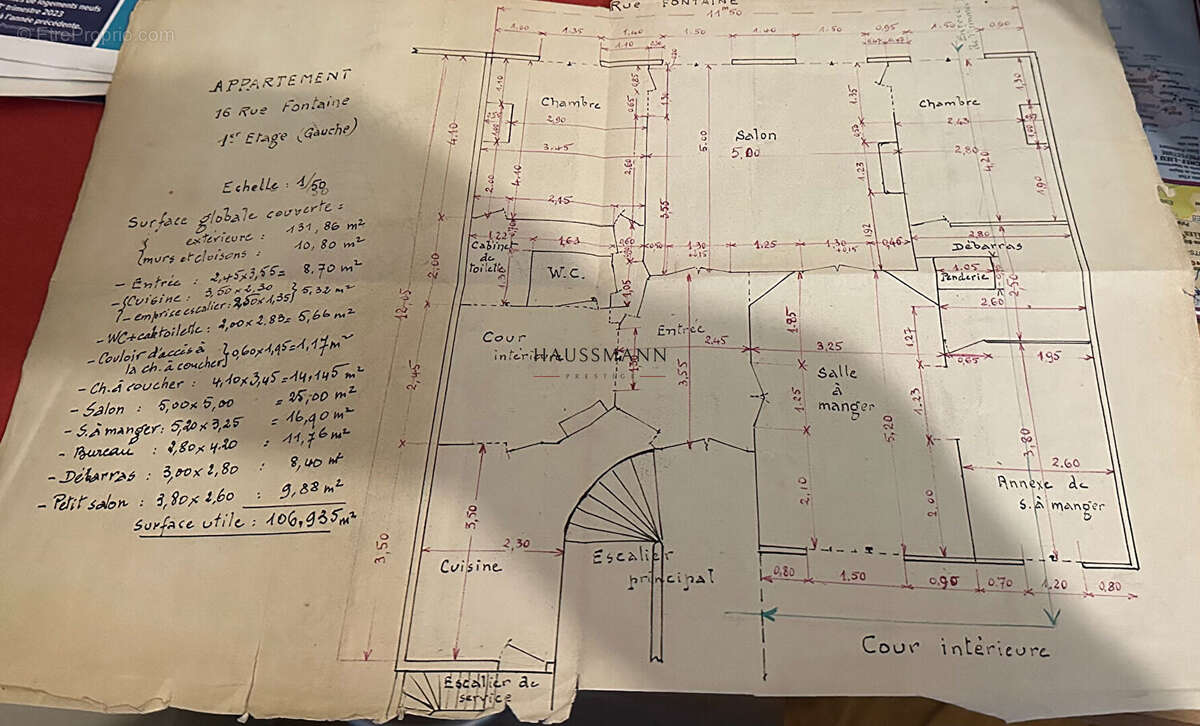 de logements neufs
trimestre 2023
à l'année précédente.
© EtreProprio.com
APPARTEMENT
16 Rue Fontaine
1er Etage (Gauche)
Echelle : 1/50
Surface globale couverte =
extérieure : 131,86 m²
murs et cloisons : 10,80 m²
- Entrée : 2,45 x 3,55 = 8,70 m²
- Cuisine : 3,50 x 2,30
- emprise escalier: 2,00 x 1,35 } 5,32 m²
- WC + cab toilette : 2,00 x 2,83 = 5,66 m²
- Couloir d'accès à
la ch. à coucher } 0,60 x 1,95 = 1,17 m²
- Ch. à coucher : 4,10 x 3,45 = 14,145 m²
- Salon : 5,00 x 5,00 = 25,00 m²
- S. à manger : 5,20 x 3,25 = 16,90 m²
- Bureau : 2,80 x 4,20 = 11,76 m²
- Débarras : 3,00 x 2,80 : 8,40 m²
- Petit salon : 3,80 x 2,60 : 9,88 m²
Surface utile : 106,935 m²
Rue FONTAINE
11m50
1.35 1.40 1.50 1.40 1.50 0,95 1.50 0.90
1.10
Chambre
2,90
3.45
2,15
4.10
4.10
2.00
Salon
5.00
5.00
3.55
2,60
1.35
1.23
Chambre
2,43
2,80
4,20
1.30
1,90
2,80
Débarras
1.05
Penderie
2,50
2.60
Cabinet
de
toilette
1,22
1,63
1.30
W.C.
0,60
1.30
1.25
1.30
0,46
+0,15
+0,15
1,05
2,00
12,05
2,45
Cour
intérieure
HAUSSMANN
PRESTIGE
Entrée
2,45
3,55
3,25
1.85
1,27
Salle
à
manger
1.25
1.23
5,20
2,10
2,00
0,65
1,95
3,80
2.60
Annexe de
S. à manger
3,50
3,50
2,30
Cuisine
Escalier
principal
0,80 1.50 0,95 0.70 1.20 0,80
Cour intérieure
Escalier de
service